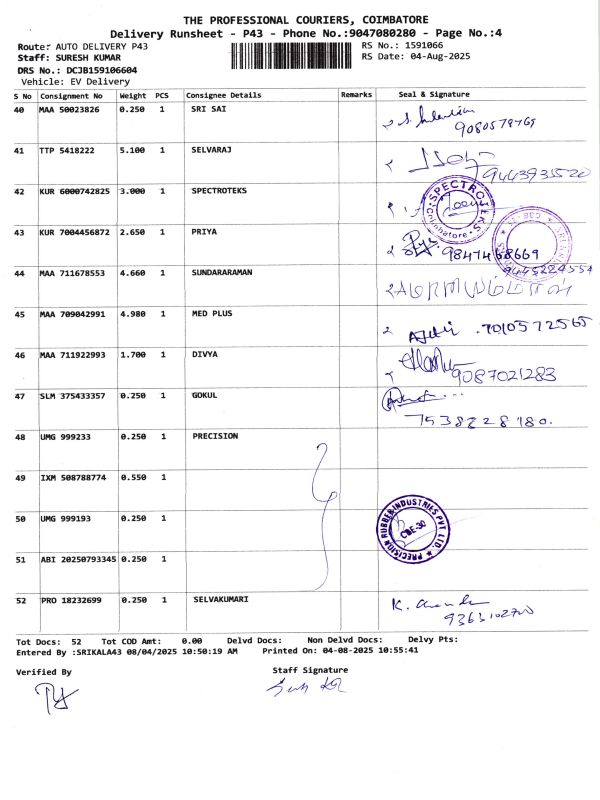 THE PROFESSIONAL COURIERS, COIMBATORE
Delivery Runsheet - P43 - Phone No.:9047080280 - Page No.:4
Route: AUTO DELIVERY P43 RS No.: 1591066
Staff: SURESH KUMAR RS Date: 04-Aug-2025
DRS No.: DCJB159106604
Vehicle: EV Delivery
S No Consignment No Weight PCS Consignee Details Remarks Seal & Signature
40 MAA 50023826 0.250 1 SRI SAI
9080579769
41 TTP 5418222 5.100 1 SELVARAJ
9443935520
42 KUR 6000742825 3.000 1 SPECTROTEKS
SPECTROTEKS Coimbatore
43 KUR 7004456872 2.650 1 PRIYA
9847468669
44 MAA 711678553 4.660 1 SUNDARARAMAN
9445224554
45 MAA 709042991 4.980 1 MED PLUS
7010572565
46 MAA 711922993 1.700 1 DIVYA
9087021283
47 SLM 375433357 0.250 1 GOKUL
7538228780.
48 UMG 999233 0.250 1 PRECISION
49 IXM 508788774 0.550 1
50 UMG 999193 0.250 1
PRECISION RUBBER INDUSTRIES PVT LTD. CBE-30
51 ABI 20250793345 0.250 1
52 PRO 18232699 0.250 1 SELVAKUMARI
9363102700
Tot Docs: 52 Tot COD Amt: 0.00 Delvd Docs: Non Delvd Docs: Delvy Pts:
Entered By :SRIKALA43 08/04/2025 10:50:19 AM Printed On: 04-08-2025 10:55:41
Verified By Staff Signature